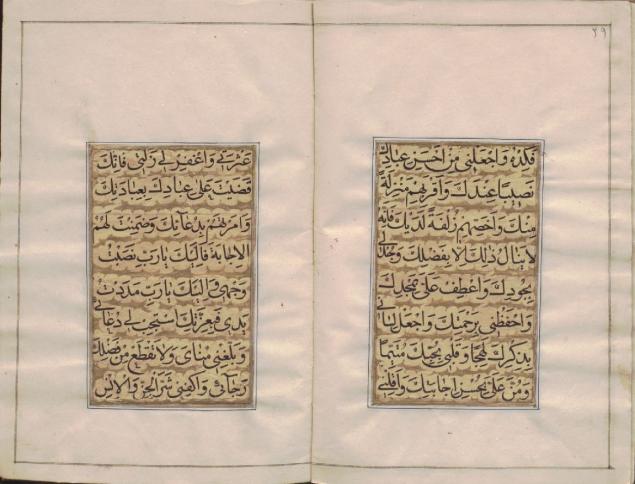 ٢٩
فكده واجعلني من احسن عبادك
نصيبا عندك واقربهم منزلة
منك واخصهم زلفة لديك فانه
لا ينال ذلك الا بفضلك وجد لي
بجودك واعطف علي بمجدك
واحفظني برحمتك واجعل لساني
بذكرك لهجا وقلبي بحبك متيما
ومن علي بحسن اجابتك واقلني
عثرتي واغفر لي زلتي فانك
قضيت على عبادك بعبادتك
وامرتهم بدعائك وضمنت لهم
الاجابة فاليك يا رب نصبت
وجهي واليك يا رب مددت
يدي فبعزتك استجب لي دعائي
وبلغني مناي ولا تقطع من فضلك
رجائي واكفني شر الجن والانس